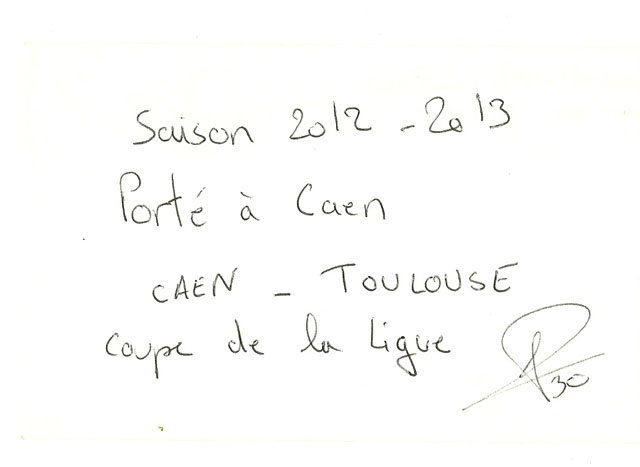 Saison 2012 - 2013
Porté à Caen
CAEN - TOULOUSE
Coupe de la Ligue
30